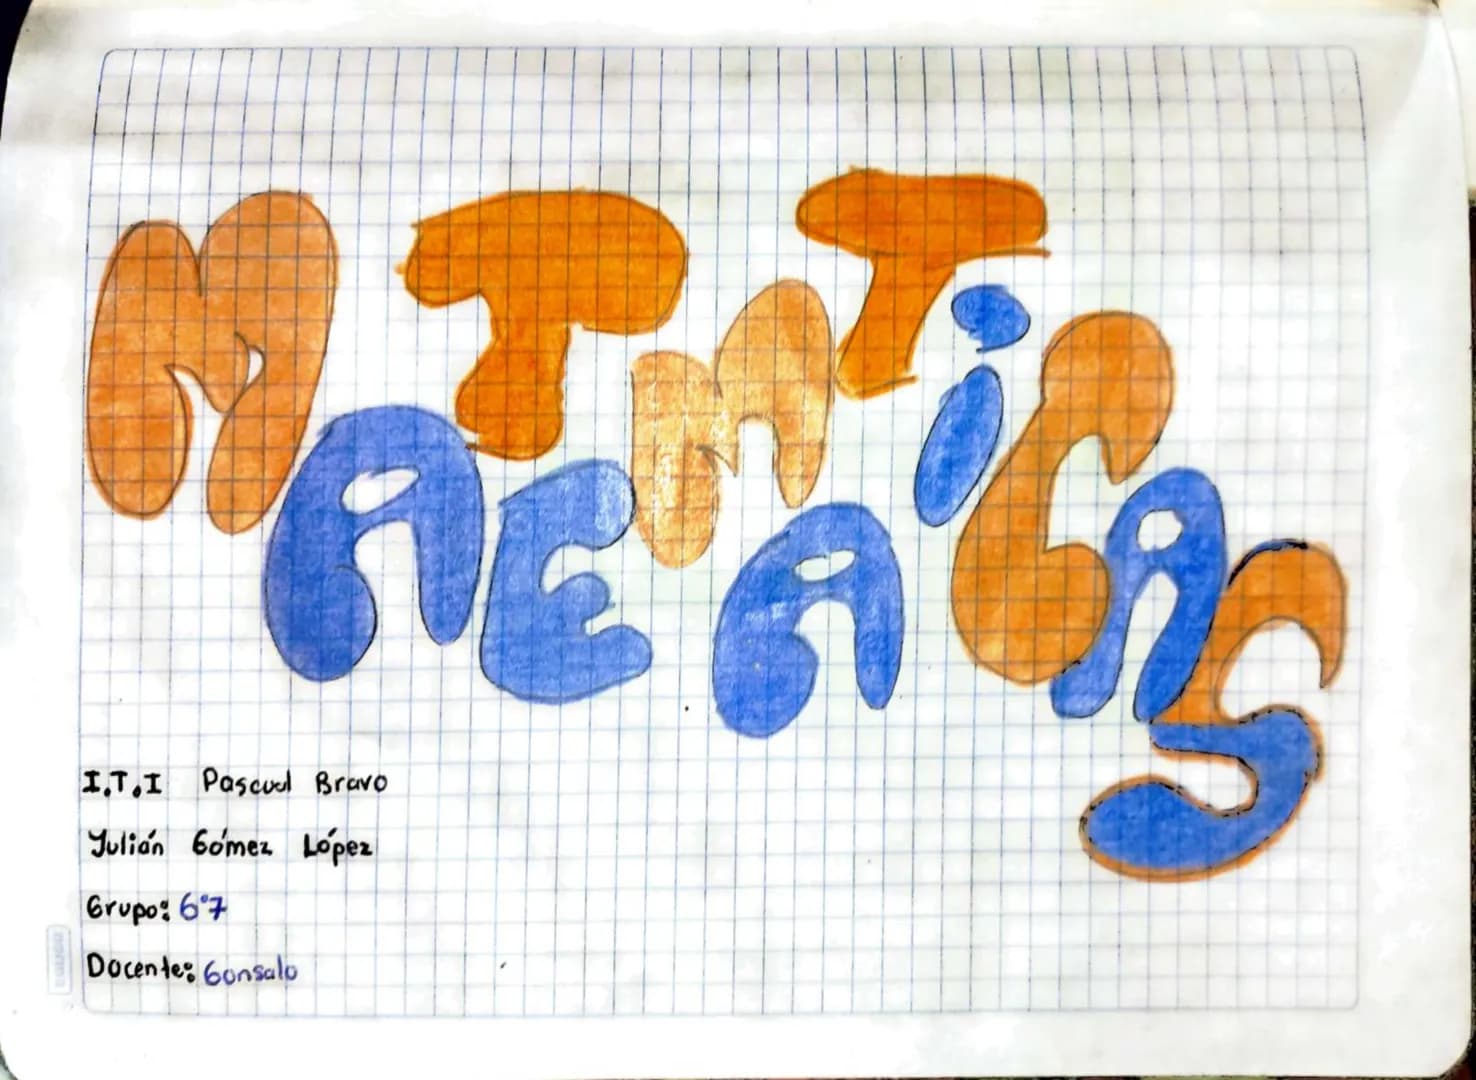 MATEMATiCAS
I.T.I Pascual Bravo
Julián Gómez López
Grupo: 6°7
Docente: Gonsalo